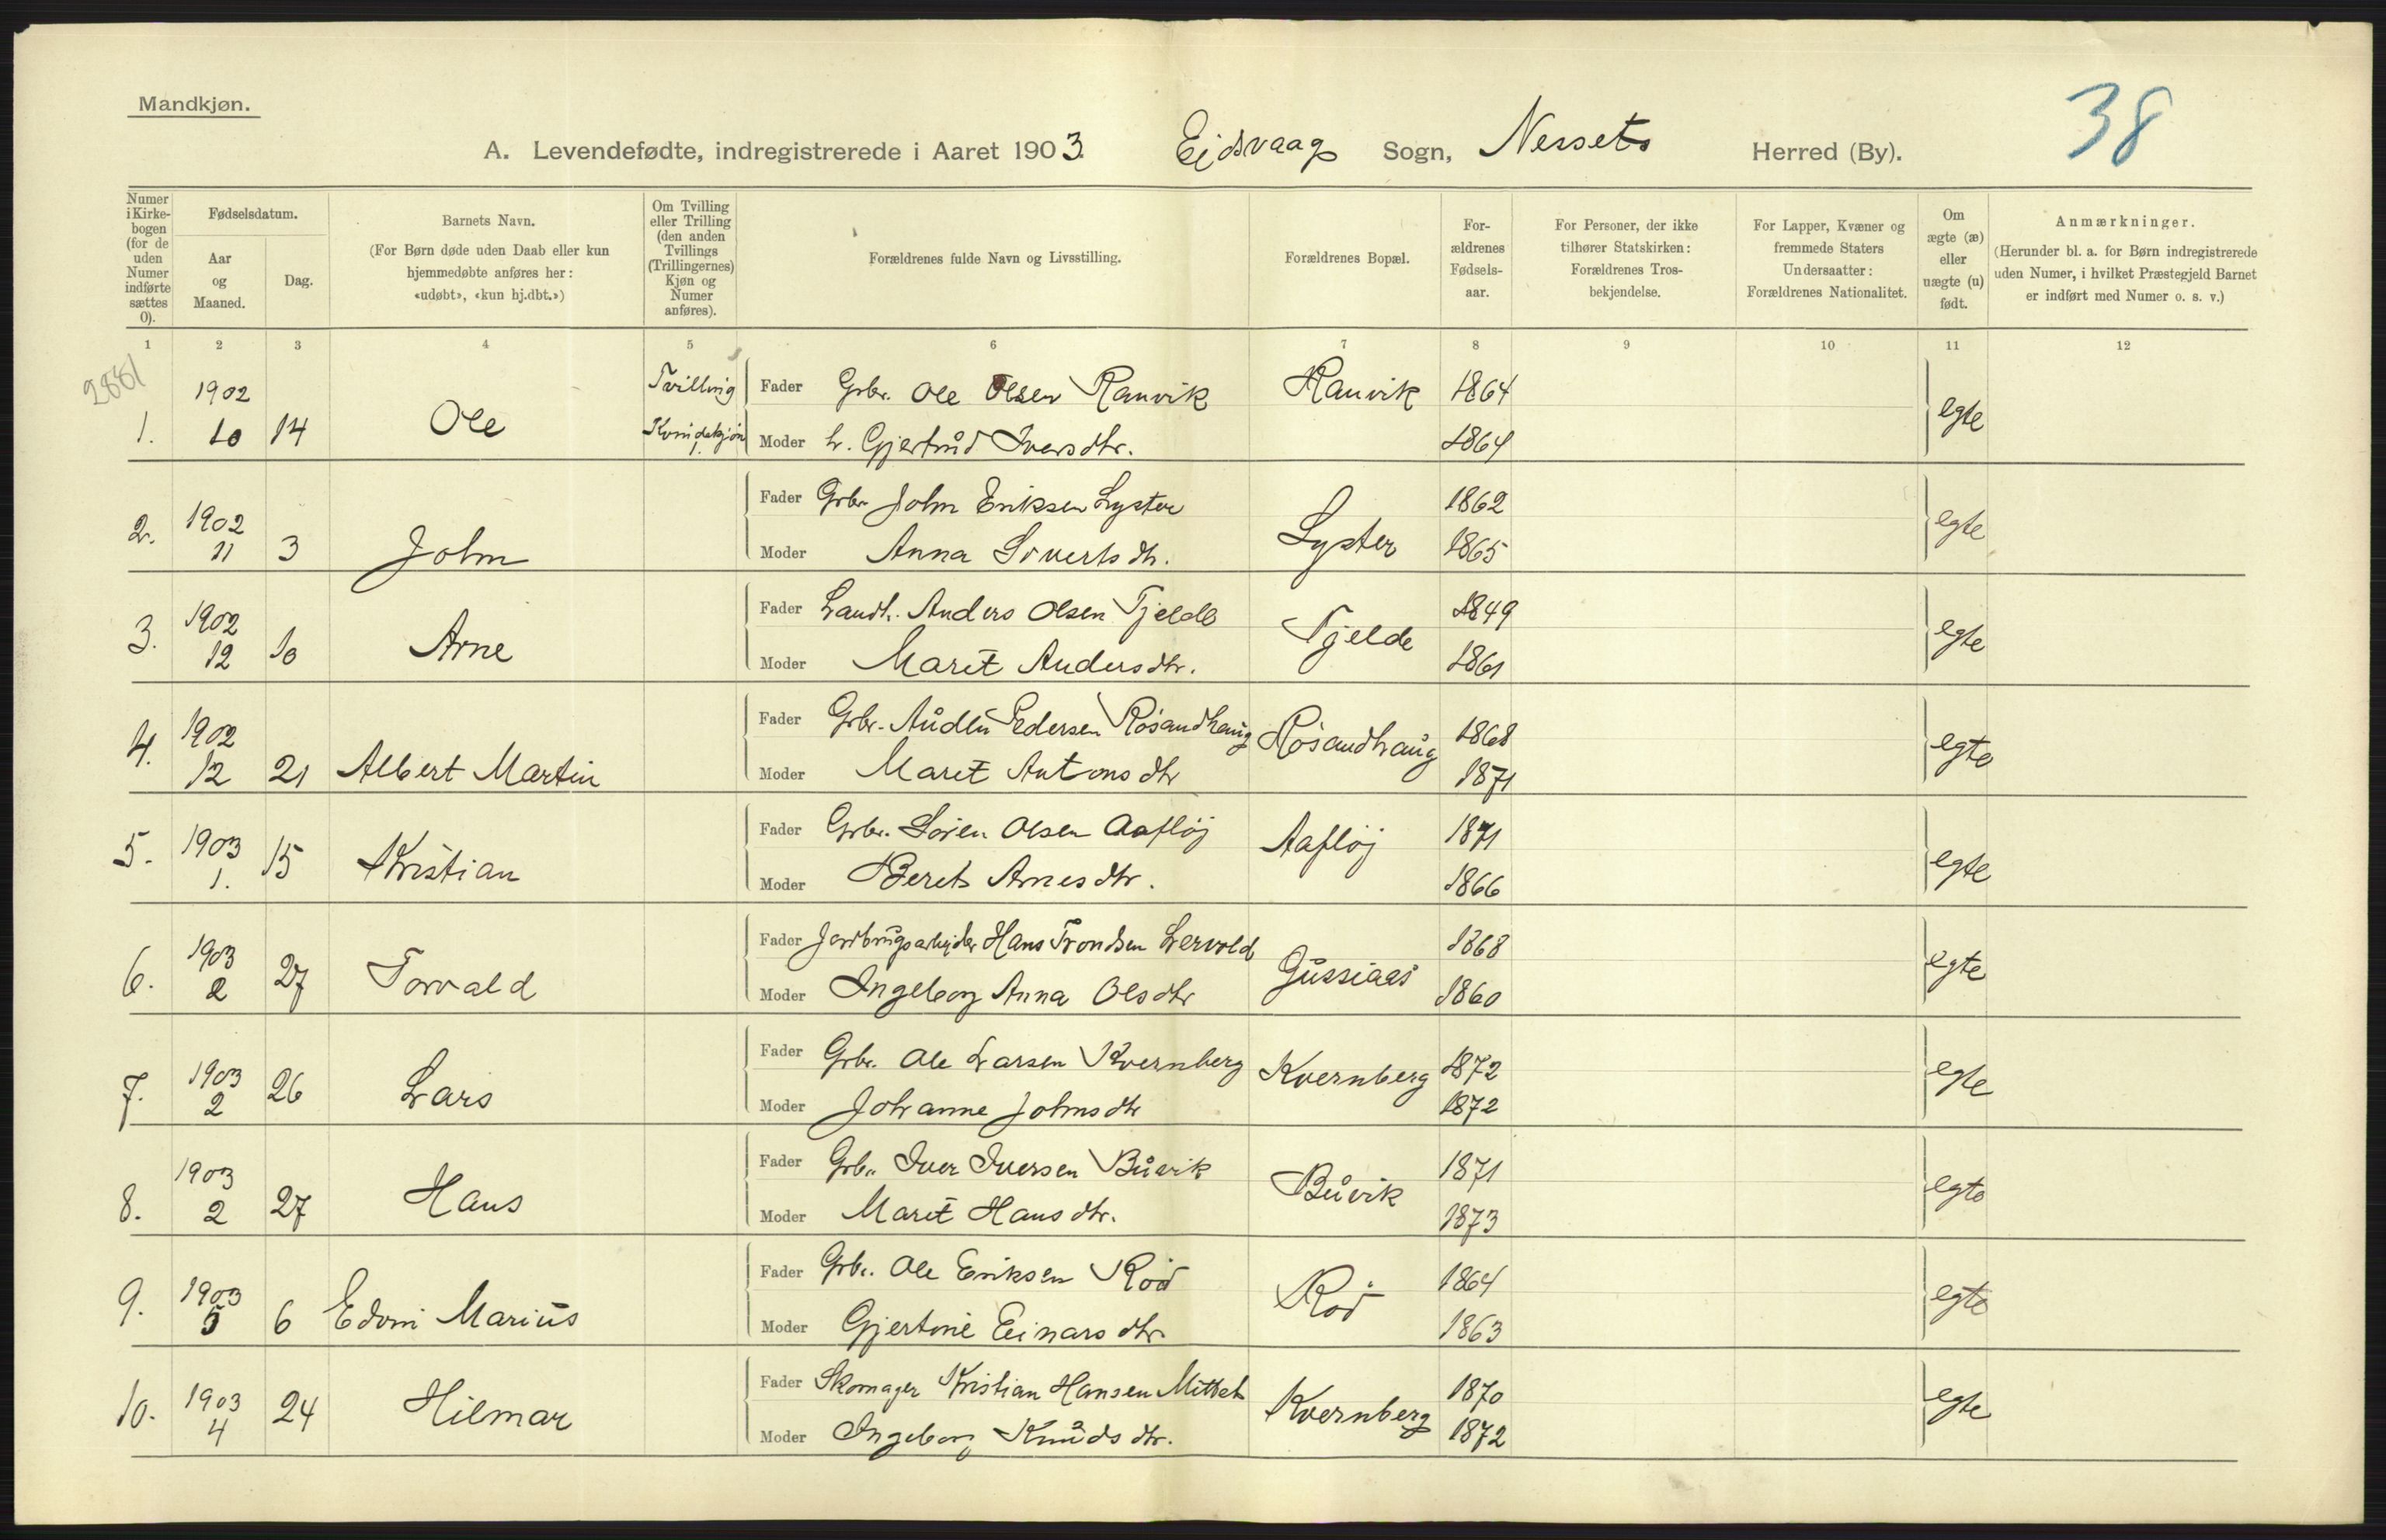 Mandkjøn.
38
A. Levendefødte, indregistrerede i Aaret 1903. Eidsvaag Sogn, Nessets Herred (By).
Numer i Kirke-bogen (for de uden Numer indførte sættes 0).
Fødselsdatum.
Aar og Maaned.
Dag.
Barnets Navn.
(For Børn døde uden Daab eller kun hjemmedøbte anføres her: «udøbt», «kun hj.dbt.»)
Om Tvilling eller Trilling (den anden Tvillings (Trillingernes) Kjøn og Numer anføres).
Forældrenes fulde Navn og Livsstilling.
Forældrenes Bopæl.
For-ældrenes Fødsels-aar.
For Personer, der ikke tilhører Statskirken: Forældrenes Tros-bekjendelse.
For Lapper, Kvæner og fremmede Staters Undersaatter: Forældrenes Nationalitet.
Om ægte (æ) eller uægte (u) født.
Anmærkninger.
(Herunder bl. a. for Børn indregistrerede uden Numer, i hvilket Præstegjeld Barnet er indført med Numer o. s. v.)
1 2 3 4 5 6 7 8 9 10 11 12
2881
1902 Tvilling Fader Grbr. Ole Olsen Ranvik Ranvik 1864 egte
1. 10 14 Ole Kvindekjøn 1. Moder h. Gjertrud Iversdtr. 1864
Fader Grbr John Eriksen Lyster 1862
2. 1902 11 3 John Moder Anna Sivertsdtr. Lyster 1865 egte
Fader Landh. Anders Olsen Tjelde 1849
3. 1902 12 10 Arne Moder Marit Andersdtr. Tjelde 1861 egte
Fader Grbr. Audin Pedersen Røsandhaug Røsandhaug 1868
4. 1902 12 21 Albert Martin Moder Marit Antonsdtr 1871 egte
Fader Grbr. Søren Olsen Aafløj Aafløj 1871
5. 1903 1. 15 Kristian Moder Beret Arnesdtr. 1866 egte
Fader Jordbrugsarbejder Hans Trondsen Lervold 1868
6. 1903 2 27 Torvald Moder Ingeborg Anna Olsdtr Gussiaas 1860 egte
Fader Grbr. Ole Larsen Kvernberg Kvernberg 1872
7. 1903 2 26 Lars Moder Johanne Johnsdtr 1872 egte
Fader Grbr. Iver Iversen Buvik 1871
8. 1903 2 27 Hans Moder Marit Hansdtr. Buvik 1873 egte
Fader Grbr. Ole Eriksen Rød 1864
9. 1903 5 6 Edvin Marius Moder Gjertine Einarsdtr Rød 1863 egte
Fader Skomager Kristian Hansen Mittet 1870
10. 1903 4 24 Hilmar Moder Ingeborg Knudsdtr. Kvernberg 1872 egte